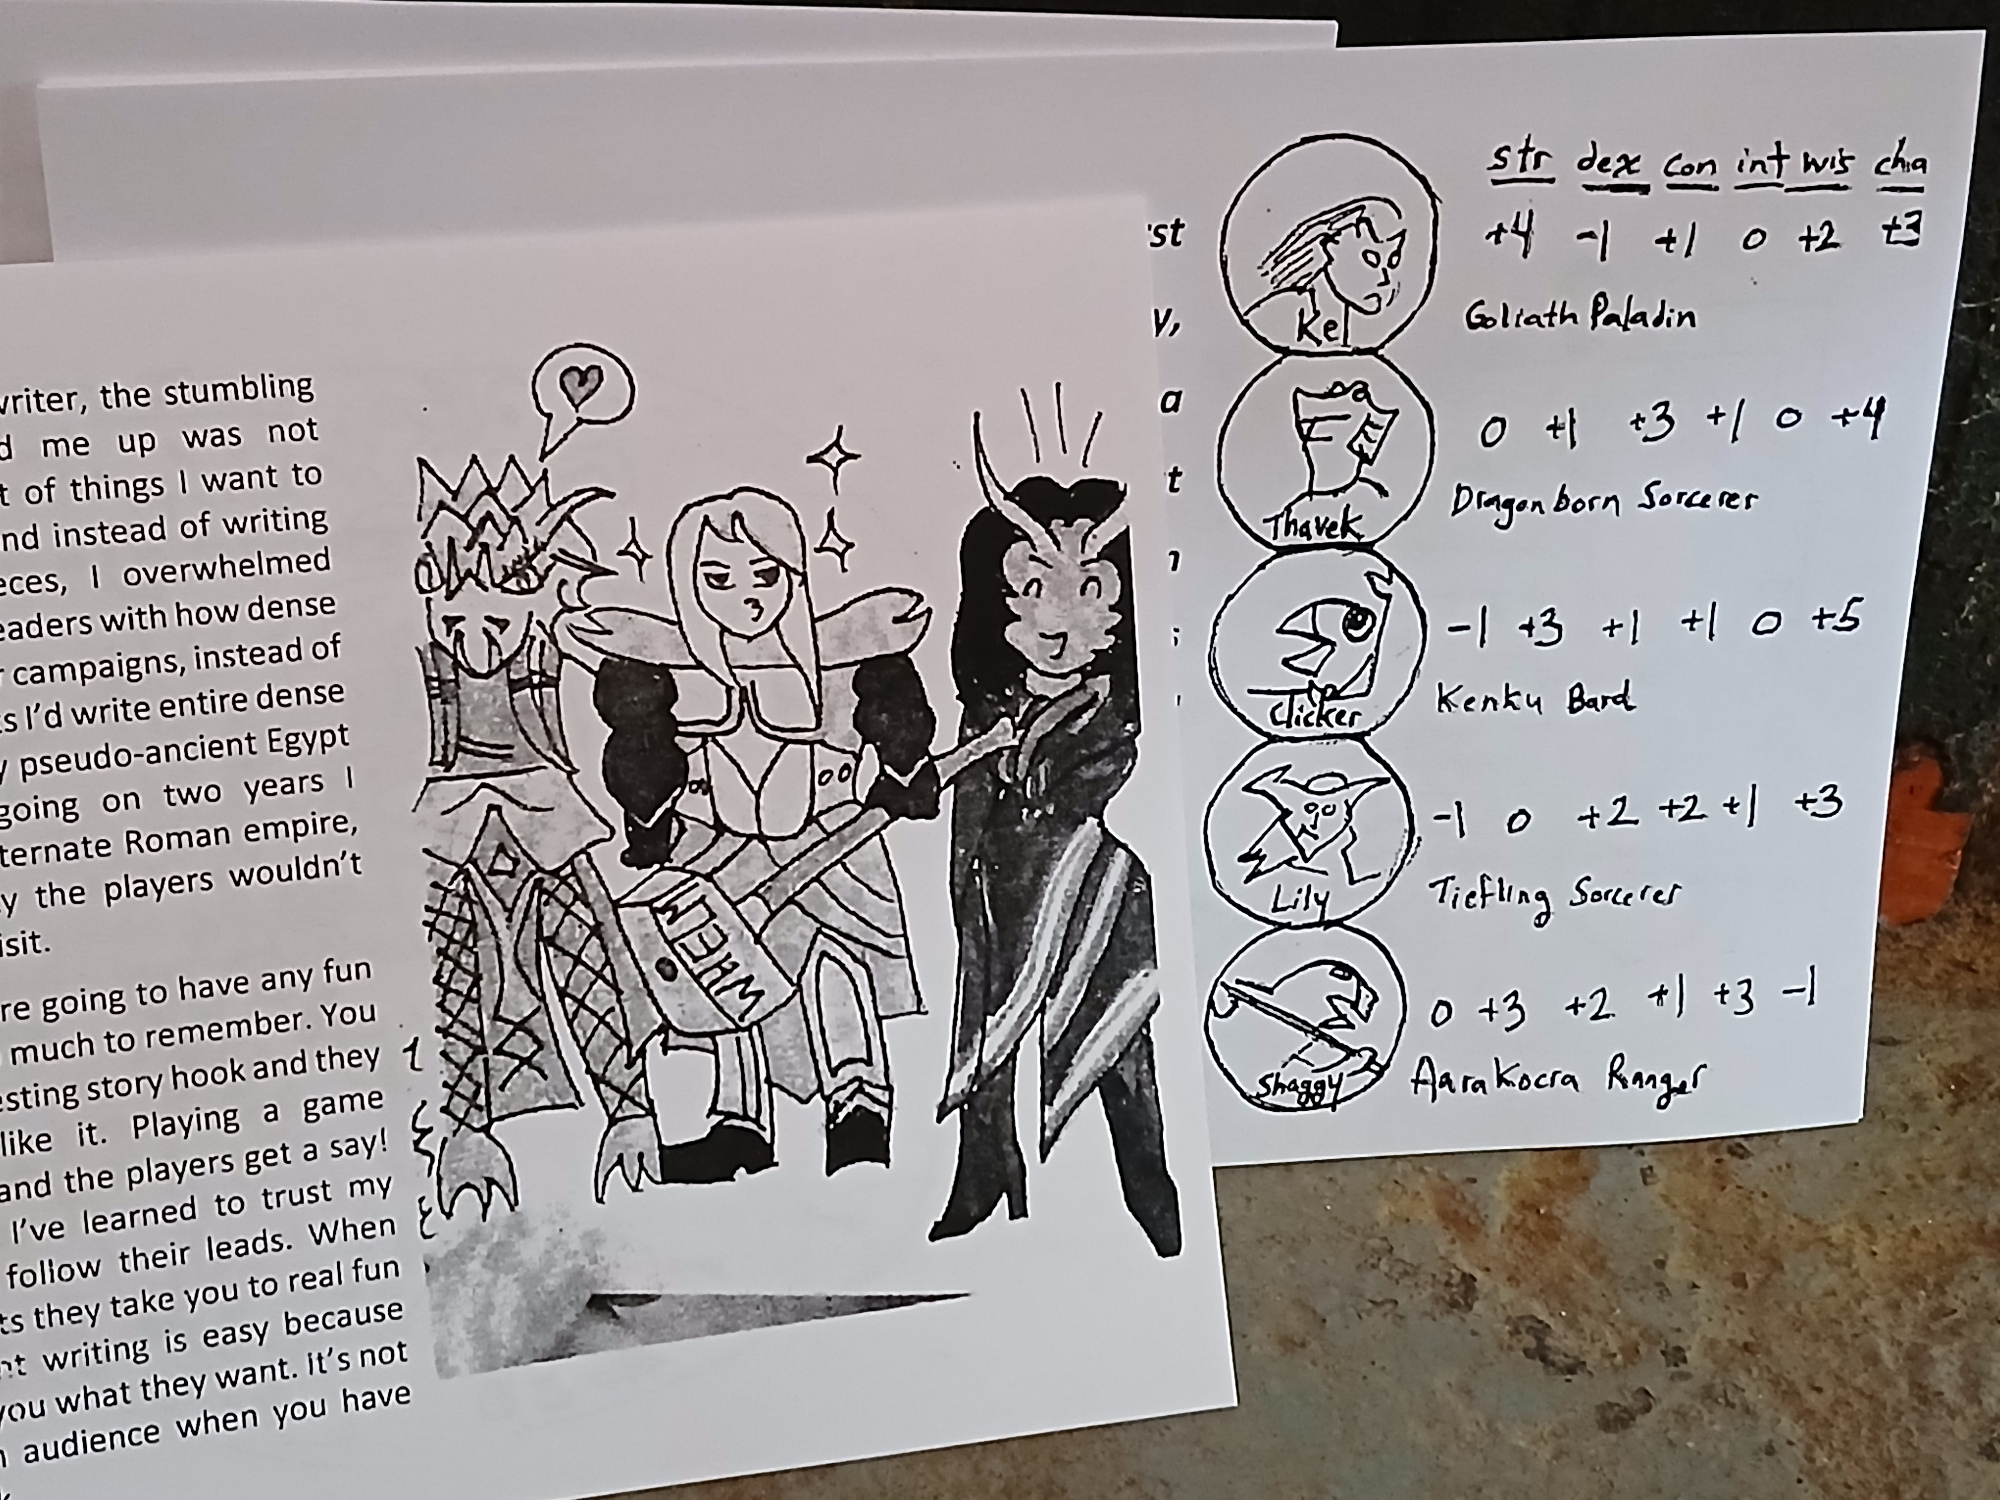 writer, the stumbling
me up was not
of things I want to
instead of writing
I overwhelmed
with how dense
campaigns, instead of
I'd write entire dense
pseudo-ancient Egypt
going on two years I
Roman empire,
the players wouldn't
going to have any fun
much to remember. You
story hook and they
like it. Playing a game
and the players get a say!
I've learned to trust my
follow their leads. When
they take you to real fun
writing is easy because
you what they want. it's not
audience when you have
WHEM
str dex con int wis cha
+4 -1 +1 0 +2 +3
Kel
Goliath Paladin
0 +1 +3 +1 0 +4
Thavek
Dragonborn Sorcerer
-1 +3 +1 +1 0 +5
Clicker
Kenku Bard
-1 0 +2 +2 +1 +3
Lily
Tiefling Sorcerer
0 +3 +2 +1 +3 -1
Shaggy
Aarakocra Ranger